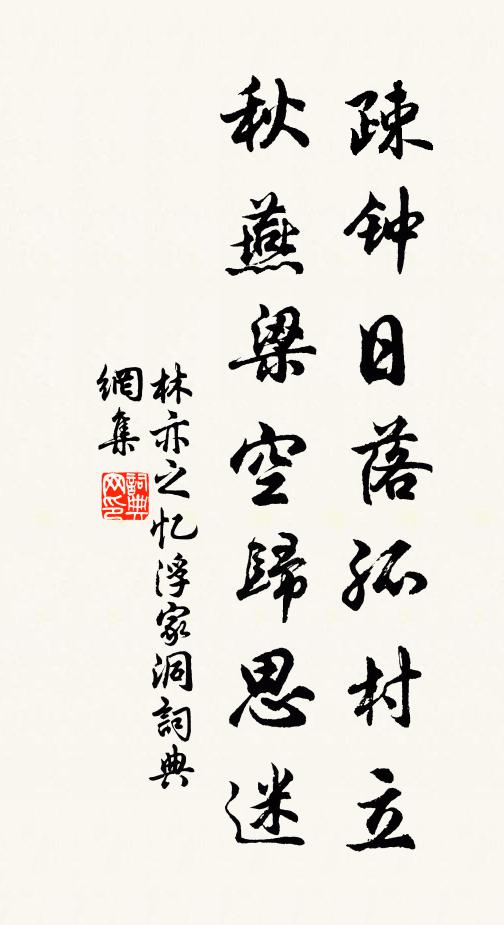 疎钟日落孤村立
秋燕梁空歸思迷
林亦之忆浮家洞詞典
網集
詞典网印